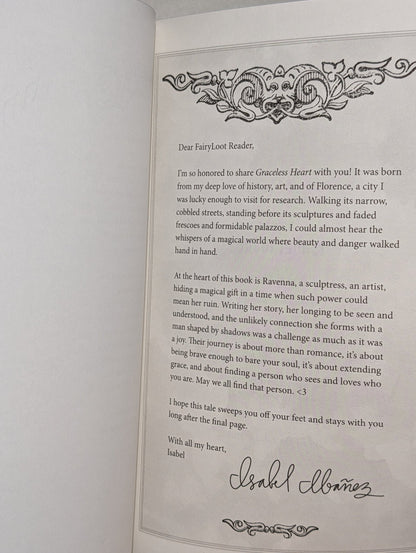 Dear FairyLoot Reader,
I'm so honored to share Graceless Heart with you! It was born
from my deep love of history, art, and of Florence, a city I
was lucky enough to visit for research. Walking its narrow,
cobbled streets, standing before its sculptures and faded
frescoes and formidable palazzos, I could almost hear the
whispers of a magical world where beauty and danger walked
hand in hand.
At the heart of this book is Ravenna, a sculptress, an artist,
hiding a magical gift in a time when such power could
mean her ruin. Writing her story, her longing to be seen and
understood, and the unlikely connection she forms with a
man shaped by shadows was a challenge as much as it was
a joy. Their journey is about more than romance, it's about
being brave enough to bare your soul, it's about extending
grace, and about finding a person who sees and loves who
you are. May we all find that person. <3
I hope this tale sweeps you off your feet and stays with you
long after the final page.
With all my heart,
Isabel
Isabel Ibañez